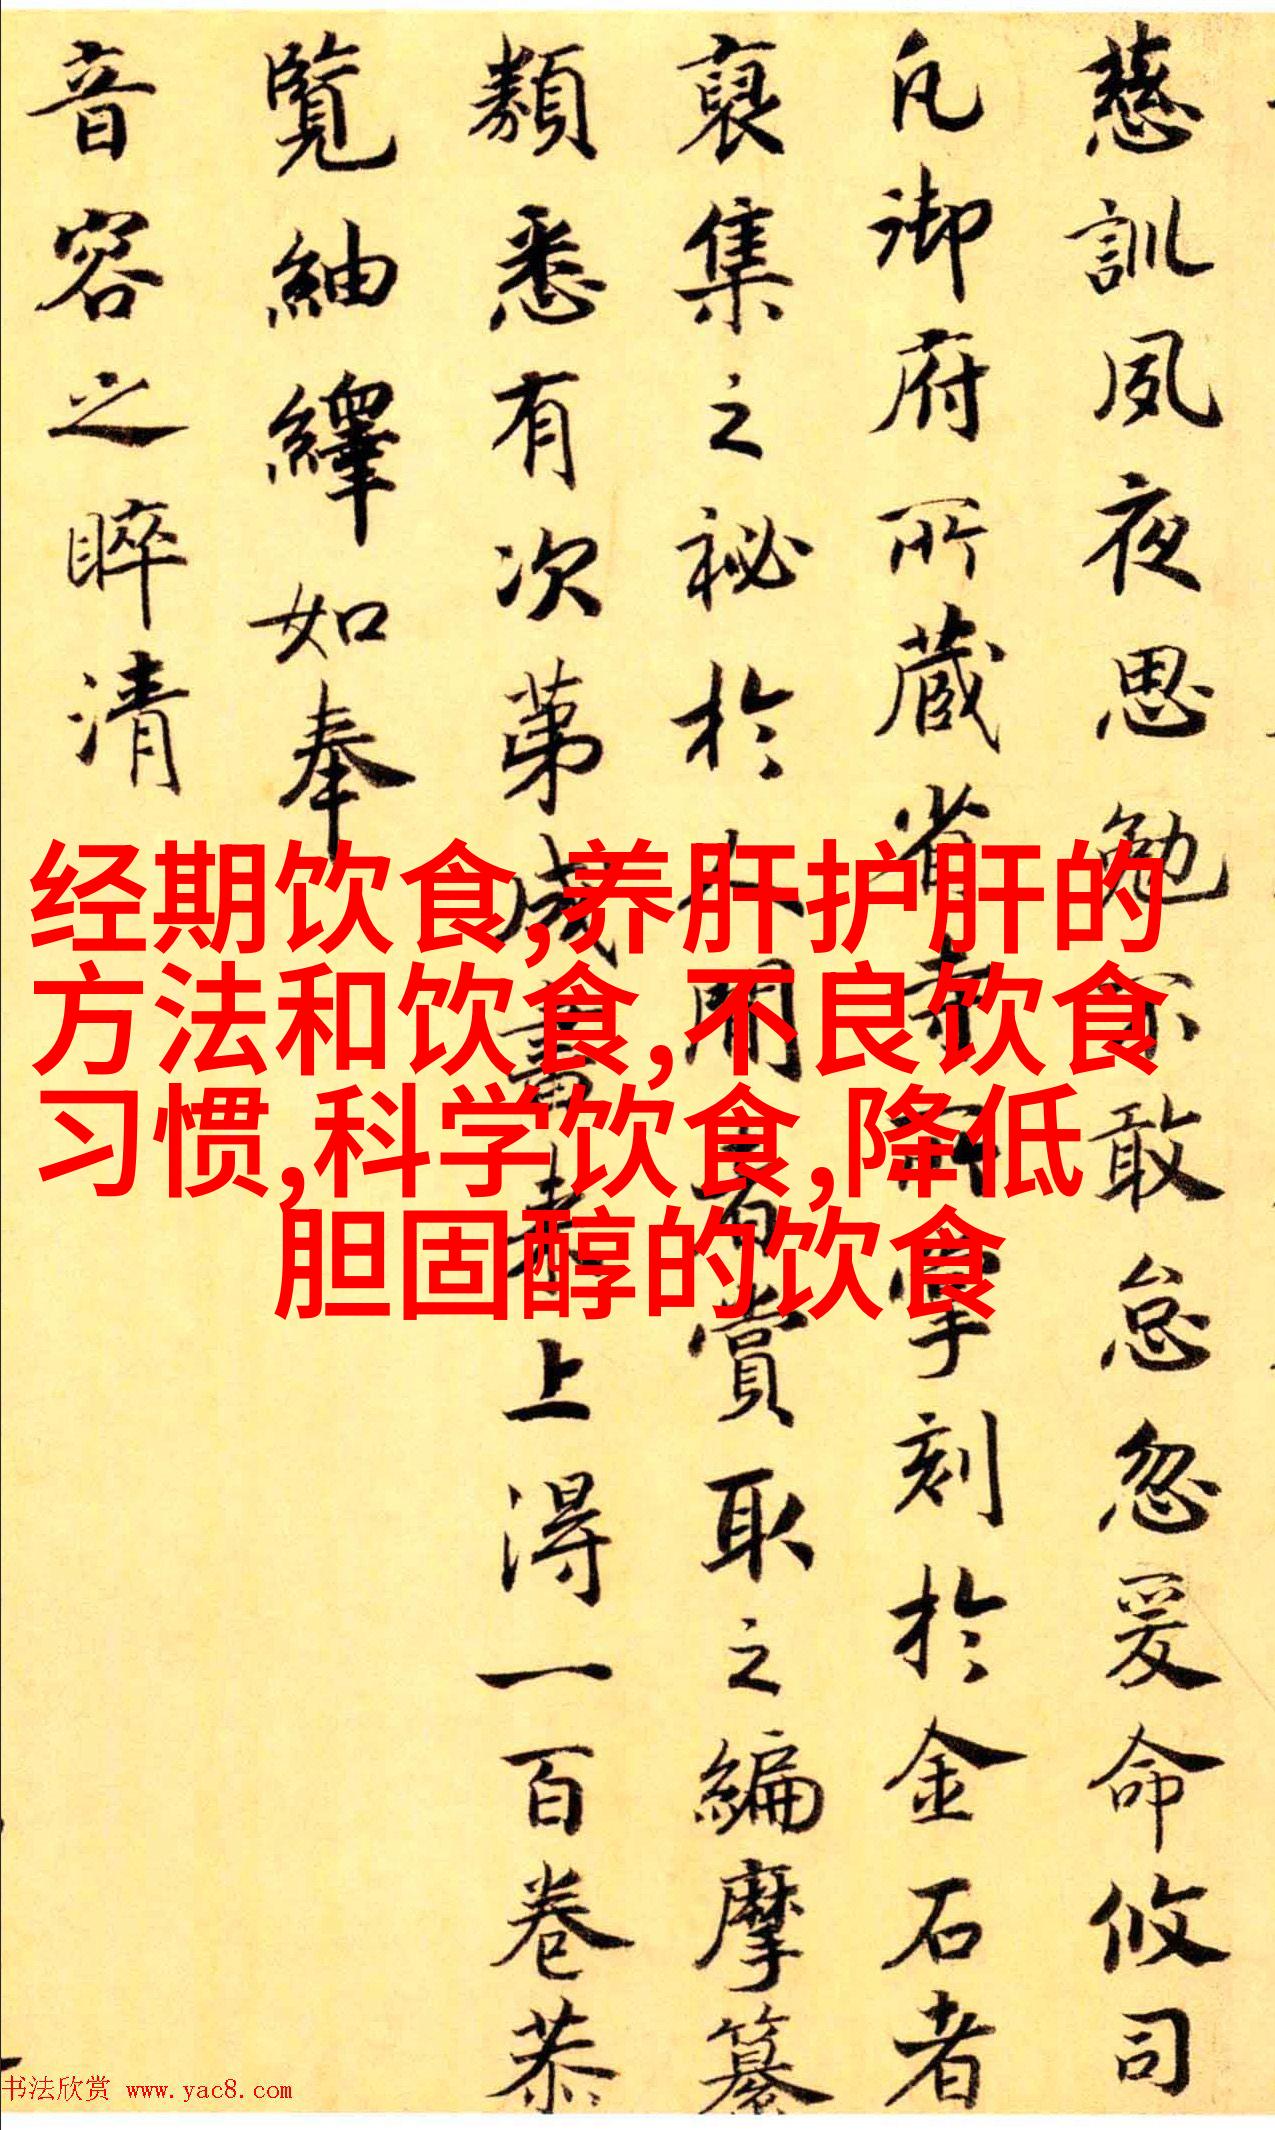 慈訓夙夜思勉不敢怠忽爰命攸司
凡御府所藏省寺所掌刻於金石者
裒集之祕於人間者賞取之編摩纂
類悉有次第成書來上得一百卷恭
覽紬繹如奉
音容之睟清
经期饮食,养肝护肝的
方法和饮食,不良饮食
习惯,科学饮食,降低
胆固醇的饮食
书法欣赏 www.yac8.com